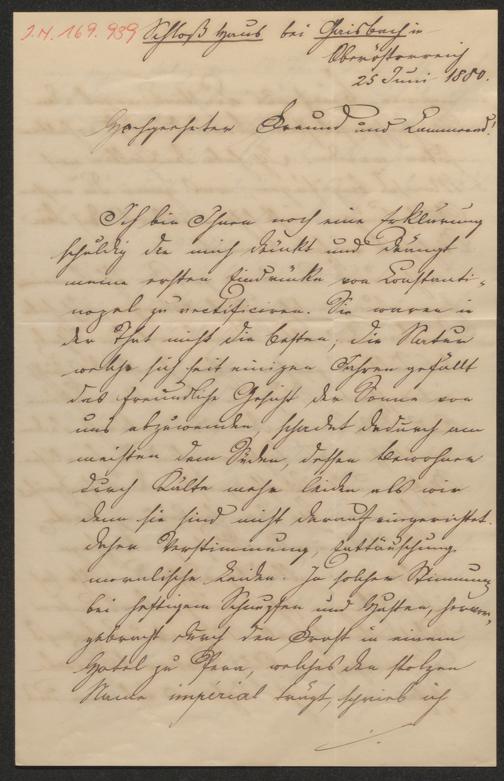 J.N. 169.989 Schloß Haus bei Gaisbach in
Oberösterreich
25 Juni 1880.
Hochgeehrter Freund und Kammerad!
Ich bin Ihnen noch eine Erklärung
schuldig die mich drückt und drängt
meine ersten Eindrücke von Constanti-
nopel zu rectificiren. Sie waren in
der That nicht die besten; die Natur
welche sich seit einigen Jahren gefällt
das freundliche Gesicht der Sonne von
uns abzuwenden, schadet dadurch am
meisten dem Süden, dessen Bewohner
durch Kälte mehr leiden als wir
denn sie sind nicht darauf eingerichtet.
Daher Verstimmung, Enttäuschung,
moralische Leiden. In solcher Stimmung
bei heftigem Schnupfen und Husten, hervor-
gebracht durch den Frost in einem
Hotel zu Pera, welches den stolzen
Name impérial trägt, schrieb ich